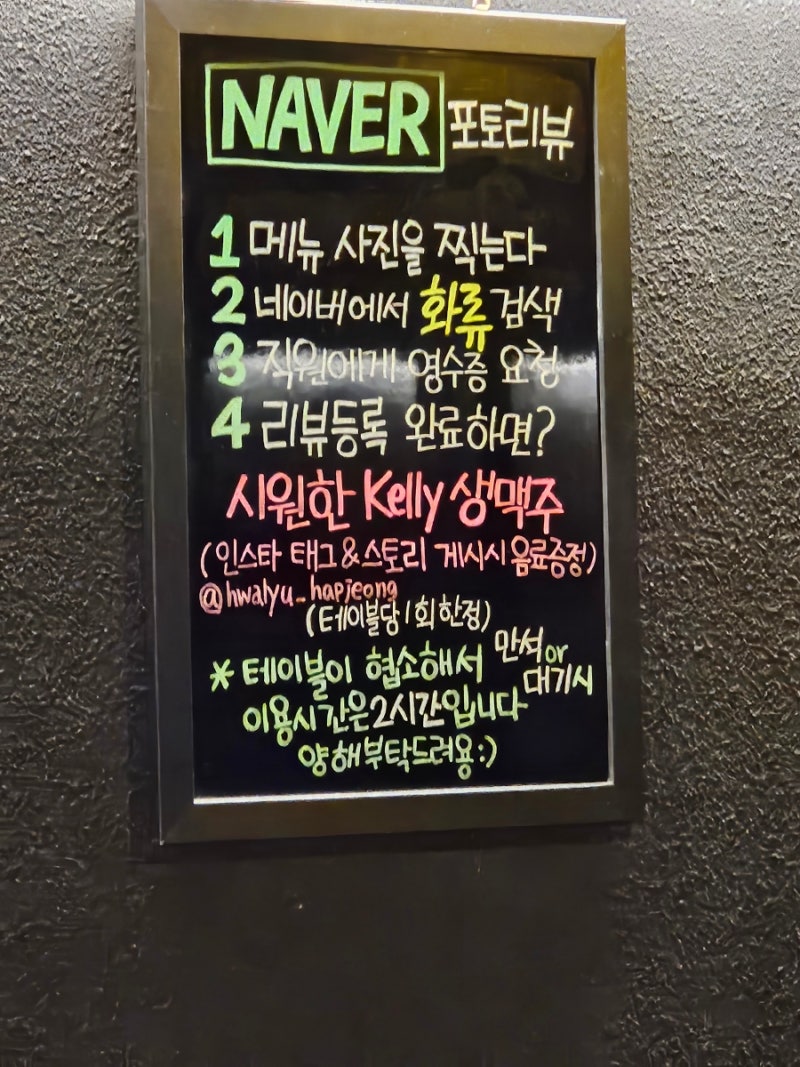 NAVER 포토리뷰
1 메뉴 사진을 찍는다
2 네이버에서 화류 검색
3 직원에게 영수증 요청
4 리뷰등록 완료하면?
시원한 Kelly 생맥주
(인스타 태그&스토리 게시시 음료증정)
@hwalyu_hapjeong
(테이블당 1회 한정)
* 테이블이 협소해서 만석 or 대기시
이용시간은 2시간입니다
양해부탁드려용:)